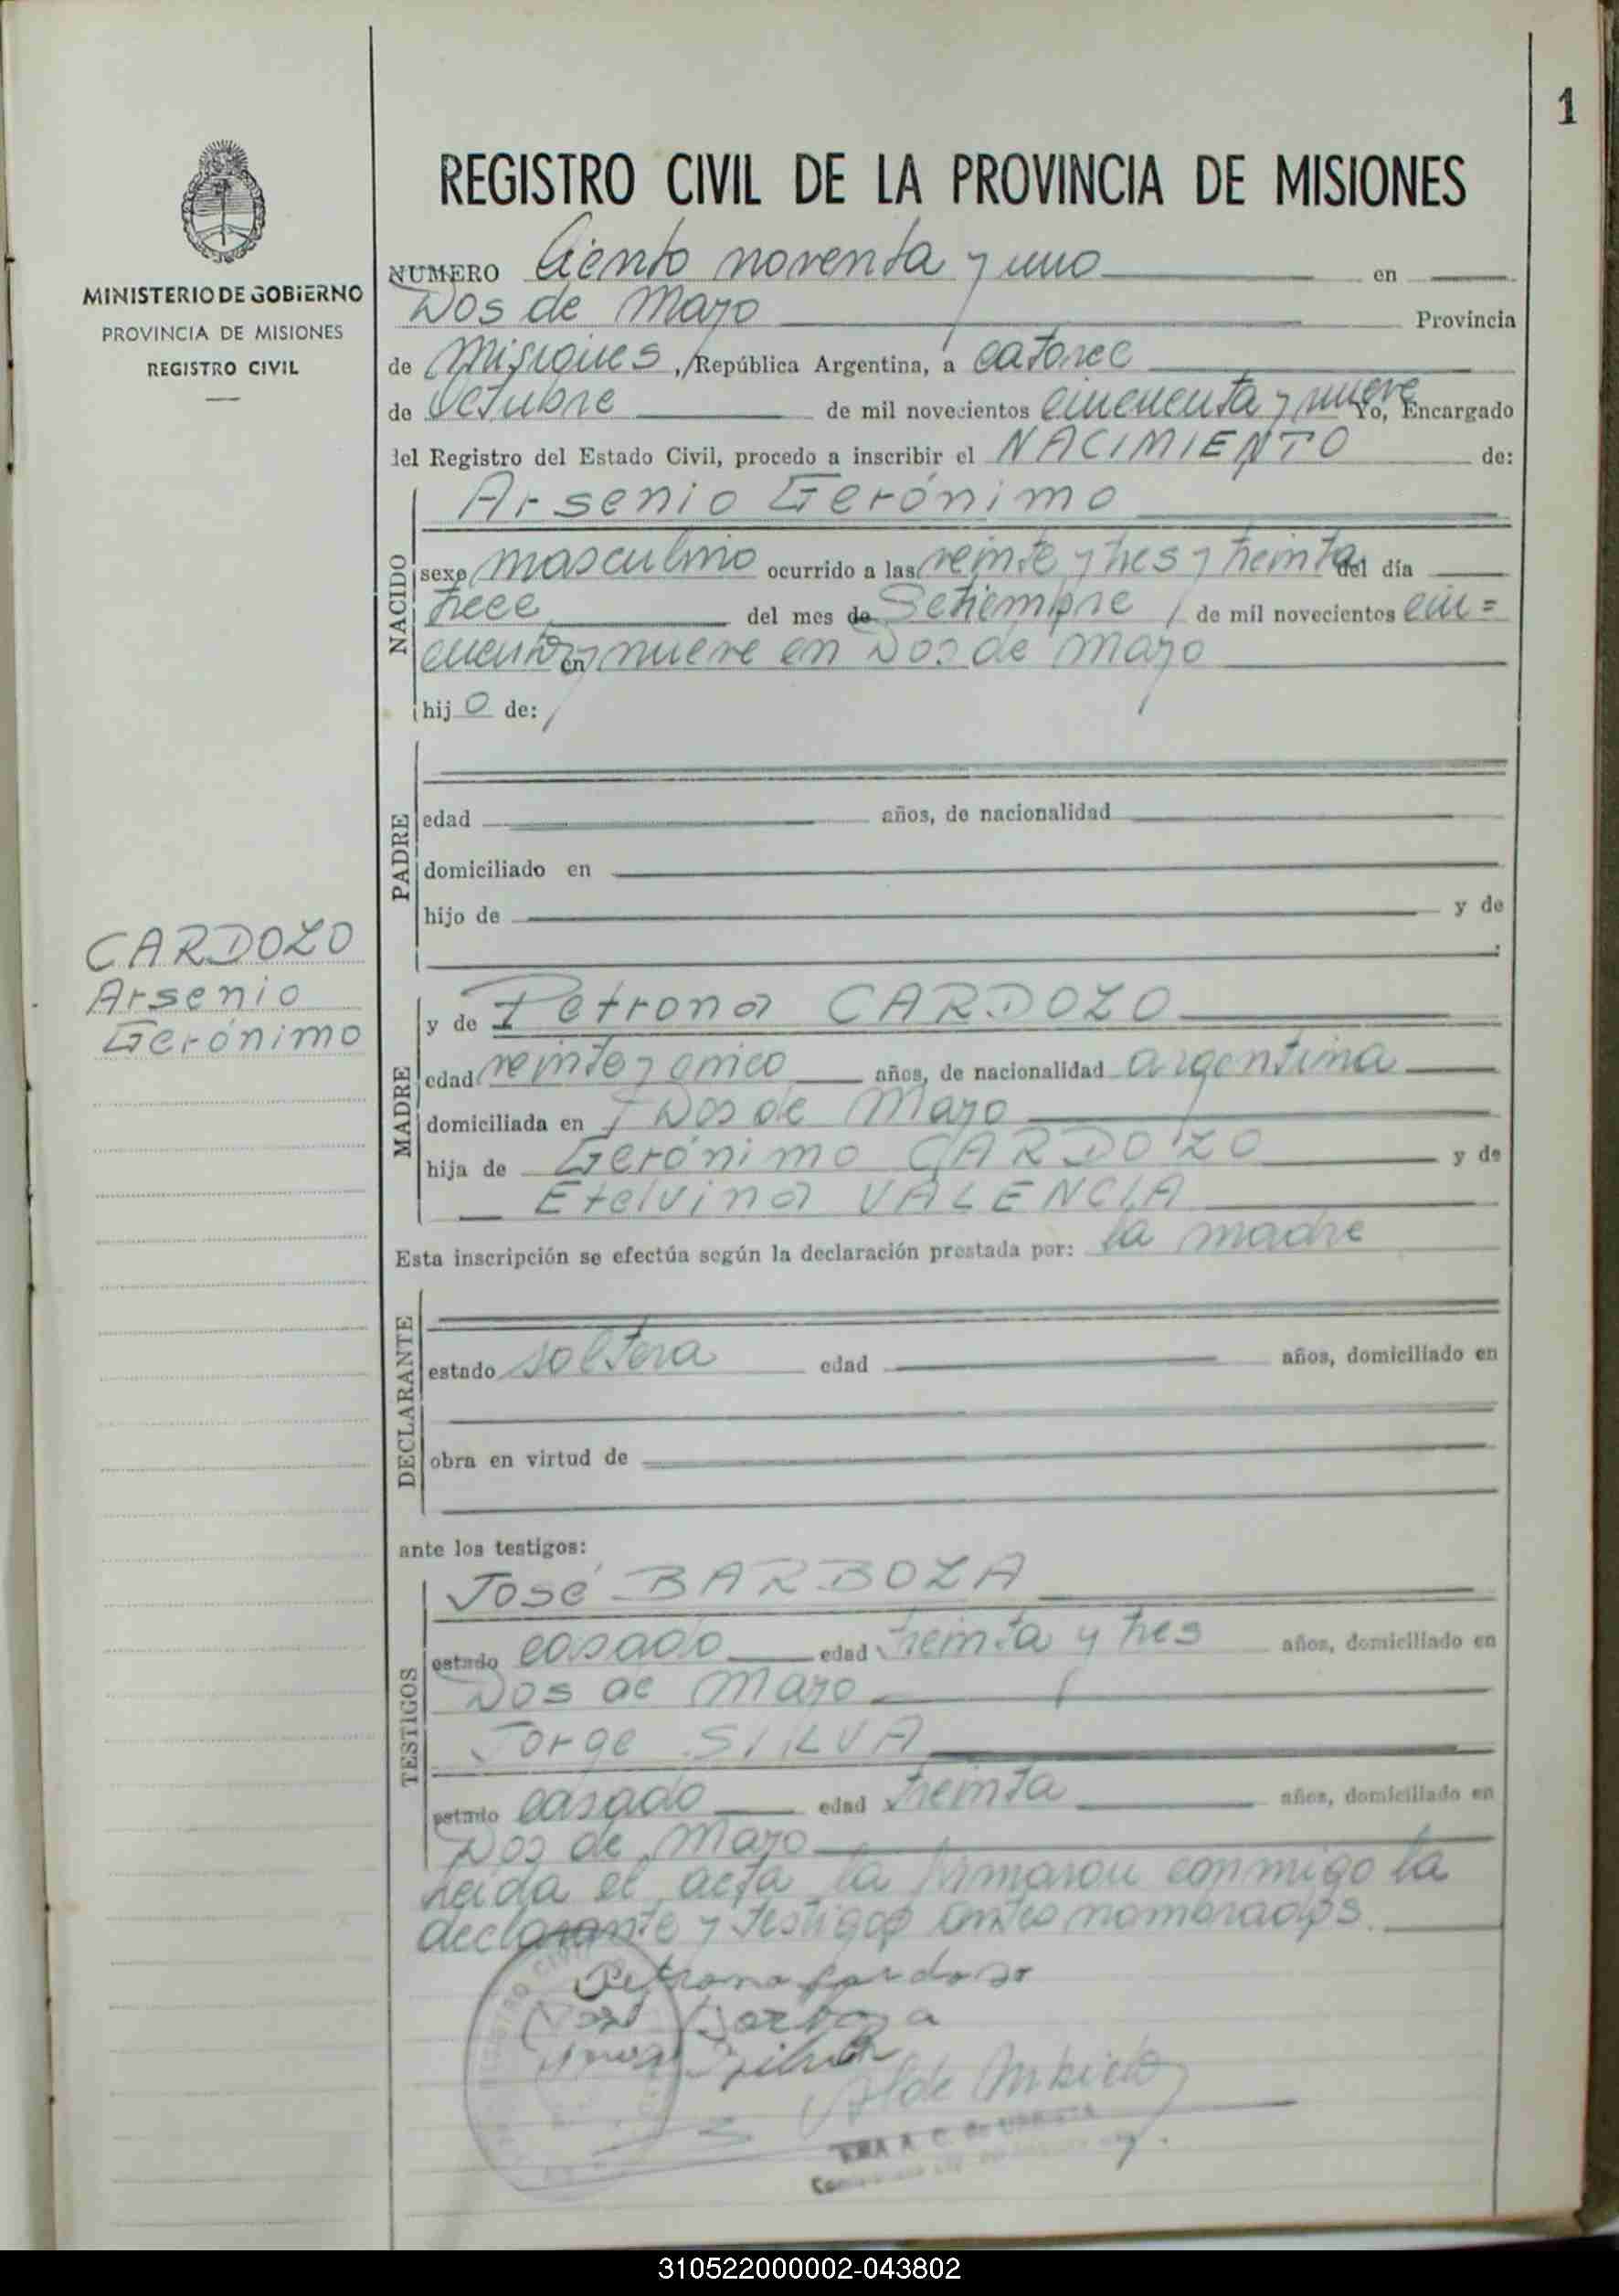 1
REGISTRO CIVIL DE LA PROVINCIA DE MISIONES
MINISTERIO DE GOBIERNO
PROVINCIA DE MISIONES
REGISTRO CIVIL
NUMERO Ciento noventa y uno en
Dos de Mayo Provincia
de Misiones, República Argentina, a catorce
de Octubre de mil novecientos cincuenta y nueve Yo, Encargado
del Registro del Estado Civil, procedo a inscribir el NACIMIENTO de:
NACIDO
Arsenio Gerónimo
sexo masculino ocurrido a las veinte y tres y treinta del día
trece del mes de Setiembre de mil novecientos cin=
cuenta y en nueve en Dos de Mayo
hij o de:
PADRE
edad años, de nacionalidad
domiciliado en
hijo de y de
CARDOZO
Arsenio
Gerónimo
MADRE
y de Petrona CARDOZO
edad veinte y cinco años, de nacionalidad argentina
domiciliada en Dos de Mayo
hija de Gerónimo CARDOZO y de
Etelvina VALENCIA
Esta inscripción se efectúa según la declaración prestada por: la madre
DECLARANTE
estado soltera edad años, domiciliado en
obra en virtud de
ante los testigos:
TESTIGOS
José BARBOZA
estado casado edad treinta y tres años, domiciliado en
Dos de Mayo
Jorge SILVA
estado casado edad treinta años, domiciliado en
Dos de Mayo
Leida el acta la firmaron conmigo la
declarante y testigos antes nombrados.
Petrona Cardozo
José Barboza
Silva
310522000002-043802